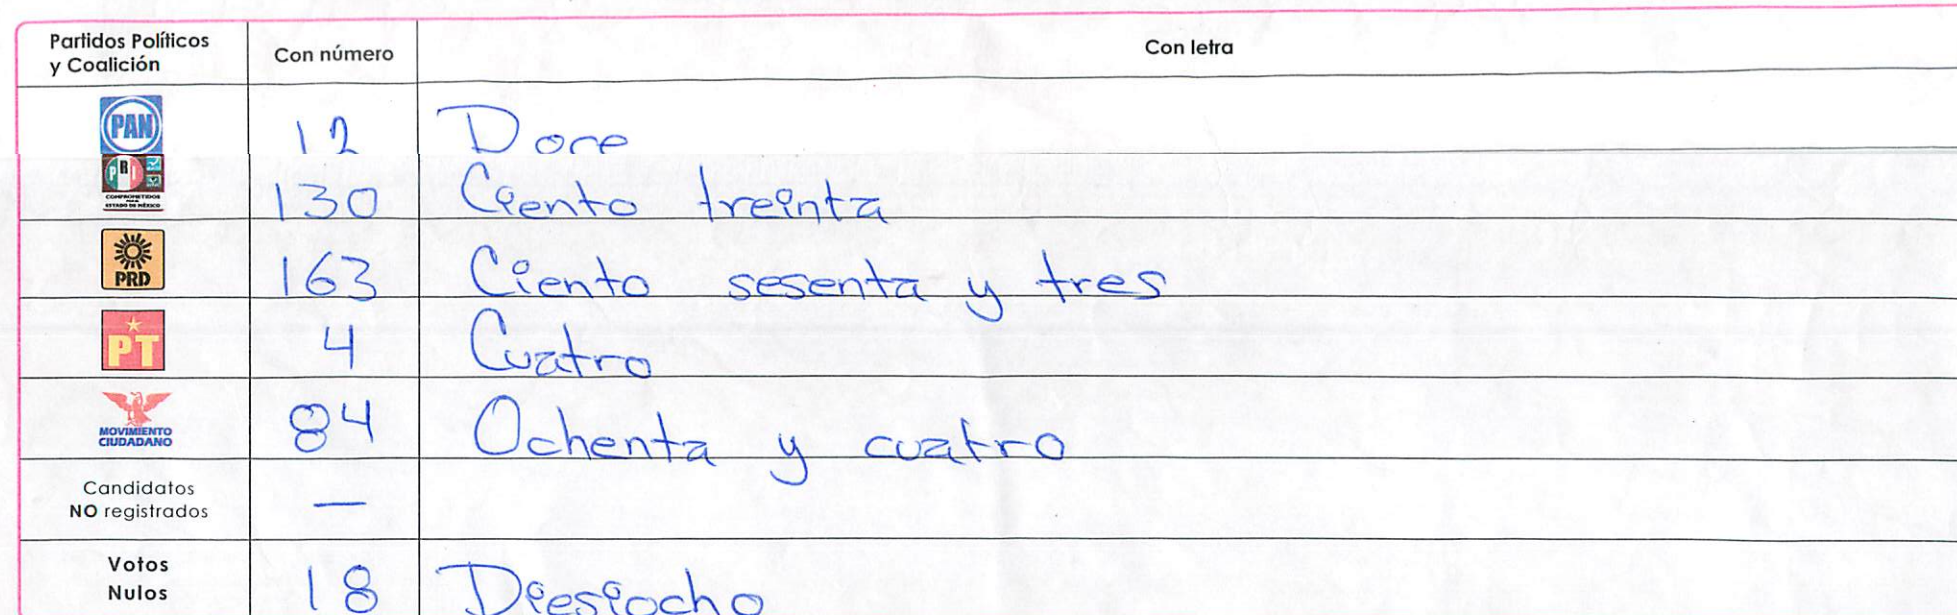 Partidos Políticos y Coalición Con número Con letra
PAN 12 Doce
PRI COMPROMETIDOS ESTADO DE MÉXICO 130 Ciento treinta
PRD 163 Ciento sesenta y tres
PT 4 Cuatro
MOVIMIENTO CIUDADANO 84 Ochenta y cuatro
Candidatos NO registrados —
Votos Nulos 18 Diesiocho